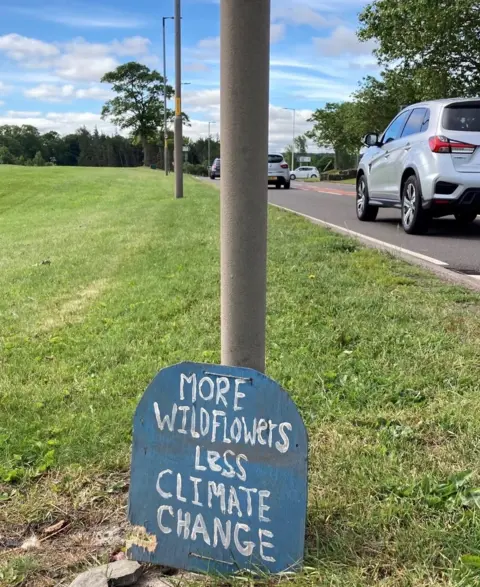 MORE
WILDFLOWERS
LESS
CLIMATE
CHANGE